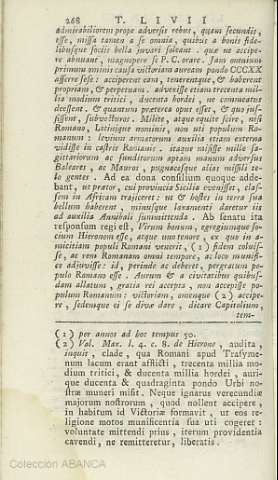 268 T. LIVII
admirabiliorem prope adversis rebus, quam secundis,
esse, missa tamen a se omnia, quibus a bonis fide-
libusque sociis bella juvari soleant. quæ ne accipe-
re abnuant, magnopere se P. C. orare. Jam omnium
primum ominis causa victoriam auream pondo CCCXX
afferre sese: acciperent eam, tenerentque, & haberent
propriam, & perpetuam. advexisse etiam trecenta mil-
lia modium tritici, ducenta hordei, ne commeatus
deessent, & quantum præterea opus esset, & quo jus-
sissent, subvecturos. Milite, atque equite scire, nisi
Romano, Latinique nominis, non uti populum Ro-
manum: levium armatorum auxilia etiam externa
vidisse in castris Romanis. itaque misisse mille sa-
gittariorum ac funditorum aptam manum adversus
Baleares, ac Mauros, pugnacesque alias missili te-
lo gentes. Ad ea dona consilium quoque adde-
bant, ut prætor, cui provincia Sicilia evenisset, clas-
sem in Africam trajiceret: ut & hostes in terra sua
bellum haberent, minusque laxamenti daretur iis
ad auxilia Annibali summittenda. Ab senatu ita
responsum regi est, Virum bonum, egregiumque so-
cium Hieronem esse, atque uno tenore, ex quo in a-
micitiam populi Romani venerit, (1) fidem coluis-
se, ac rem Romanam omni tempore, ac loco munifi-
ce adjuvisse: id, perinde ac deberet, gratum po-
pulo Romano esse. Aurum & a civitatibus quibus-
dam allatum, gratia rei accepta, non accepisse po-
pulum Romanum: victoriam, omenque (2) accipe-
re, sedemque ei se divæ dare, dicare Capitolium,
tem-
(1) per annos ad hoc tempus 50.
(2) Val. Max. l. 4. c. 8. de Hierone, audita,
inquit, clade, qua Romani apud Trasyme-
num lacum erant afflicti, trecenta millia mo-
dium tritici, & ducenta millia hordei, auri-
que ducenta & quadraginta pondo Urbi no-
stræ muneri misit. Neque ignarus verecundiæ
majorum nostrorum, quod nollent accipere,
in habitum id Victoriæ formavit, ut eos re-
ligione motos munificentia sua uti cogeret:
voluntate mittendi prius, iterum providentia
cavendi, ne remitteretur, liberalis.
Colección ABANCA